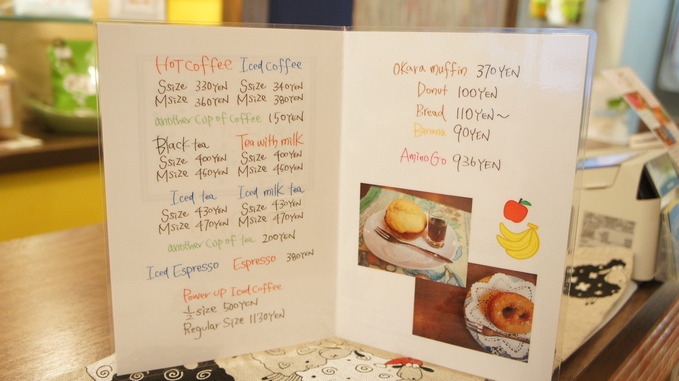 Hot coffee Iced coffee
Ssize 330YEN Ssize 340YEN
Msize 360YEN Msize 390YEN
another cup of coffee 150YEN
Black tea Tea with milk
Ssize 400YEN Ssize 400YEN
Msize 460YEN Msize 460YEN
Iced tea Iced milk tea
Ssize 430YEN Ssize 430YEN
Msize 470YEN Msize 470YEN
another cup of tea 200YEN
Iced Espresso Espresso 380YEN
Power up Iced Coffee
1/2 size 500YEN
Regular Size 1130YEN
Okara muffin 370YEN
Donut 100YEN
Bread 110YEN～
Banana 90YEN
AminoGo 936YEN